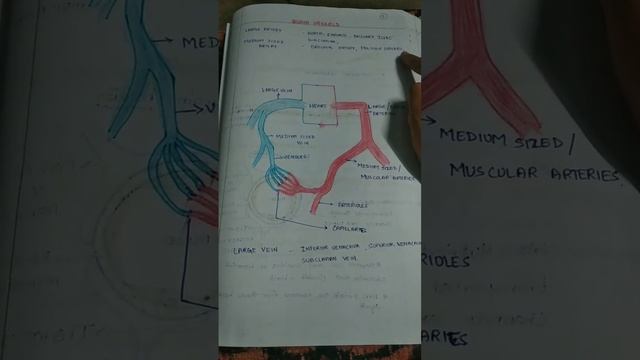 BLOOD VESSELS
LARGE ARTERIES - AORTA, CAROTID,
SUBCLAVIAN
MEDIUM SIZED ARTERY -
LARGE VEIN
HEART
LARGE/
MEDIUM SIZED
VEIN
VENULES/
MEDIUM SIZED/
MUSCULAR ARTERIES
ARTERIOLES
CAPILLARIES
LARGE VEIN - INFERIOR VENACAVA, SUPERIOR VENACAVA
SUBCLAVIAN VEIN.
MED
V
MEDIUM SIZED/
MUSCULAR ARTERIES.
RIOLES
ARIES